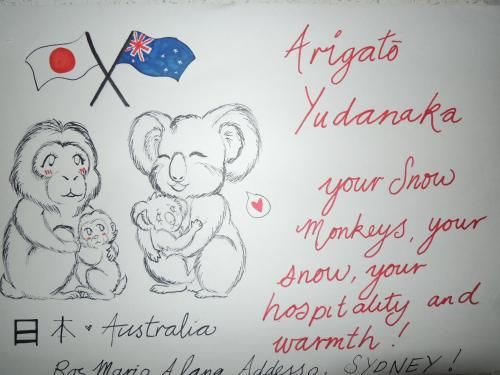 Arigatō
Yudanaka
your Snow
Monkeys, your
snow, your
hospitality and
warmth!
日本 ♥ Australia
Ros Mario Alana Addesso, SYDNEY!